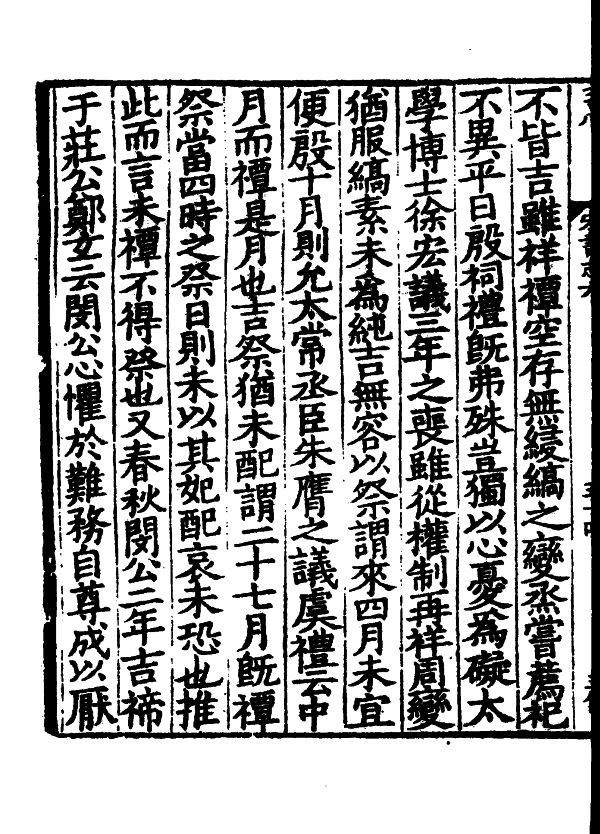 不皆吉雖祥禫空存無緩縞之變烝嘗薦祀
不異平日殷祠禮旣弗殊豈獨以心憂為礙太
學博士徐宏議三年之喪雖從權制再祥周變
猶服縞素未為純吉無容以祭謂來四月未宜
便殷十月則允太常丞臣朱膺之議虞禮云中
月而禫是月也吉祭猶未配謂二十七月旣禫
祭當四時之祭日則未以其妃配哀未忘也推
此而言未禫不得祭也又春秋閔公二年吉禘
于莊公鄭玄云閔公心懼於難務自尊成以厭